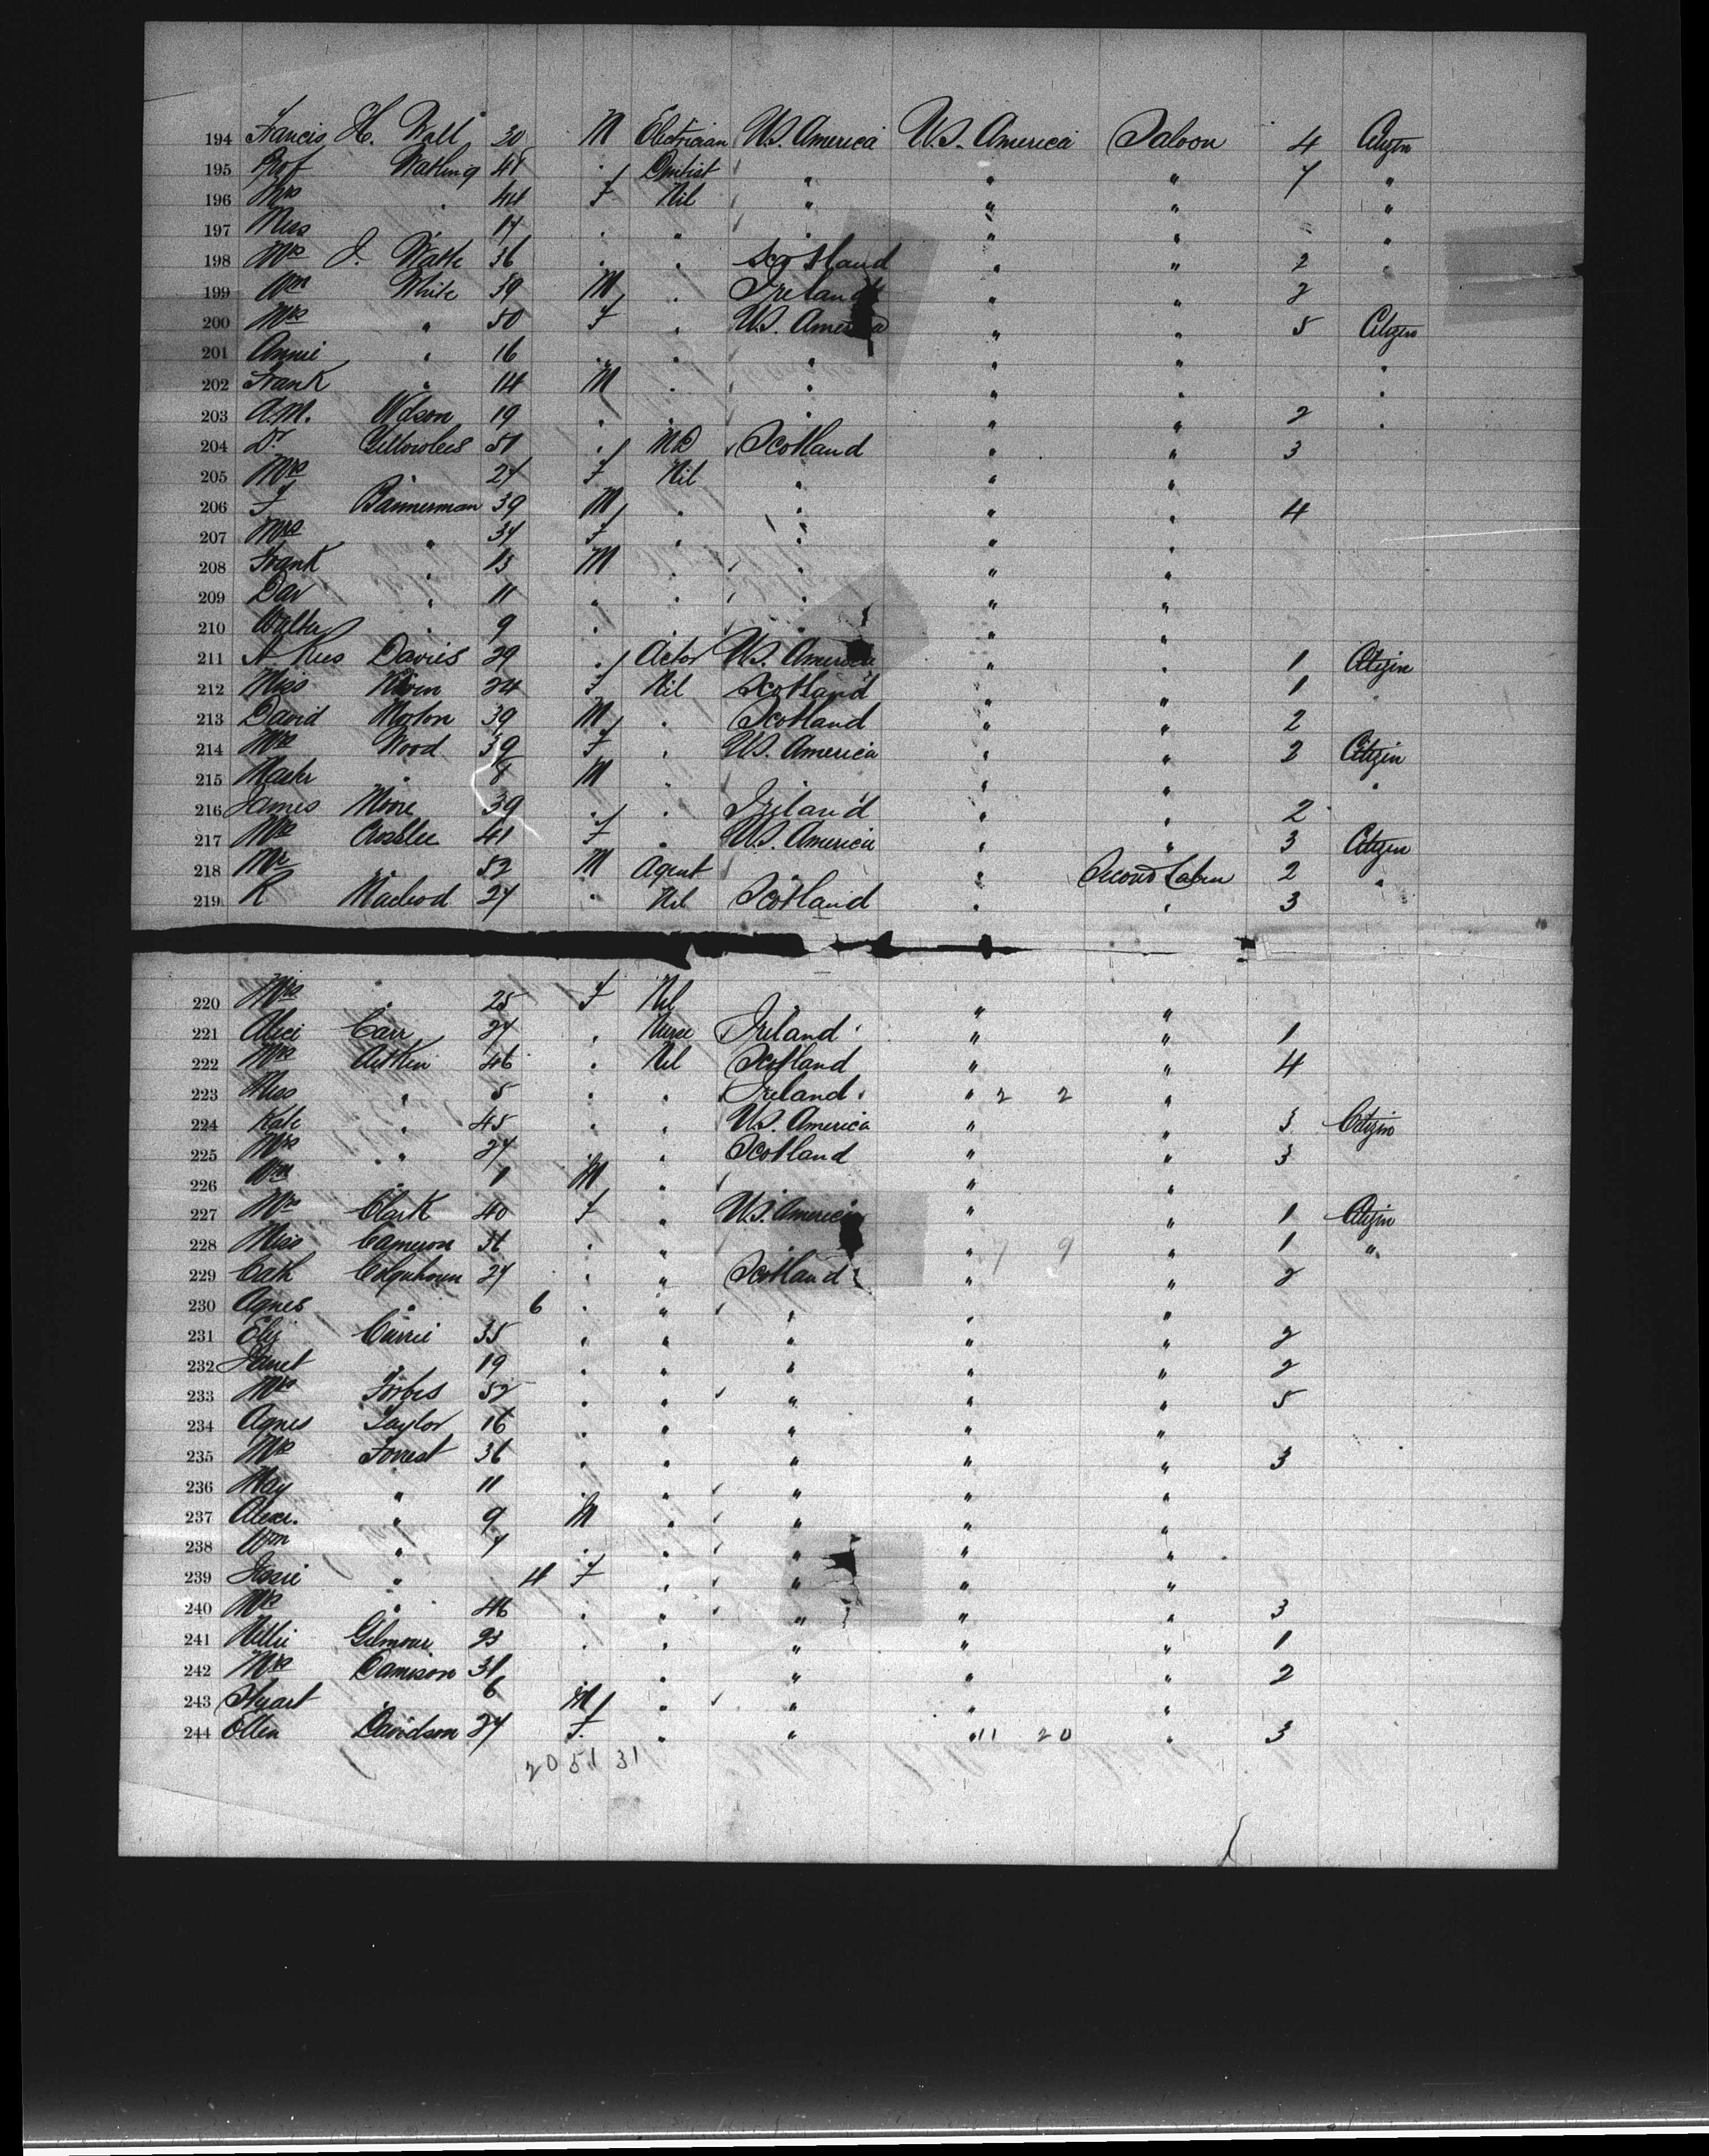 194 Francis H. Wall 30 M Electrician U.S. America U.S. America Saloon 4 Citizen
195 Prof Watling 48 " Dentist " " " 7 "
196 Mrs " 44 F Nil " " " "
197 Miss " 17 " " " " " "
198 Mrs J. 36 " " Scotland " " 2 "
199 Wm White 59 M " Ireland " " 2
200 Mrs " 50 F " U.S. America " " 5 Citizen
201 Annie " 16 " " " " " "
202 Frank " 14 M " " " " "
203 A.M. Wilson 19 " " " " " 2 "
204 Dr 51 " M.D Scotland " " 3
205 Mrs " 27 F Nil " " "
206 F Bannerman 39 M " " " " 4
207 Mrs " 37 F " " " "
208 Frank " 13 M " " " "
209 Dav " 11 " " " " "
210 Walter " 9 " " " " "
211 A Rees Davies 29 " Actor U.S. America " " 1 Citizen
212 Miss 24 F Nil Scotland " " 1 "
213 David Morton 39 M " Scotland " " 2
214 Mrs Wood 39 F " U.S. America " " 2 Citizen
215 Mastr " 8 M " " " "
216 James 39 " " Ireland " " 2
217 Mrs Crosslee 41 F " U.S. America " " 3 Citizen
218 Mr " 52 M Agent " Second Cabin 2 "
219 R Macleod 27 " Nil Scotland " " 3
220 Mrs " 25 F Nil " "
221 Alice Carr 27 " Nurse Ireland " " 1
222 Mrs Aitken 46 " Nil Scotland " " 4
223 Miss " 5 " " Ireland " 2 2 "
224 Kate " 45 " " U.S. America " " 3 Citizen
225 Mrs " 27 " " Scotland " " 3
226 Wm " 1 M " " "
227 Mrs Clark 40 F " U.S. America " " 1 Citizen
228 Miss Cameron 31 " " " " 7 9 " 1 "
229 Cath Colquhoun 27 " " Scotland " " 2
230 Agnes " 6 " " " " "
231 Eliz Currie 35 " " " " " 2
232 Janet " 19 " " " " " 2
233 Mrs Forbes 52 " " " " " 5
234 Agnes Taylor 16 " " " " "
235 Mrs Forrest 36 " " " " " 3
236 May " 11 " " " "
237 Alexr. " 9 M " " " "
238 Wm " 7 " " " " "
239 Josie " 4 F " " " "
240 Mrs " 46 " " " " " 3
241 Nellie Gilmour 23 " " " " " 1
242 Mrs 31 " " " " 2
243 Stuart 6 M " " " "
244 Ellen Davidson 27 F. " " " 11 20 " 3
20 51 31